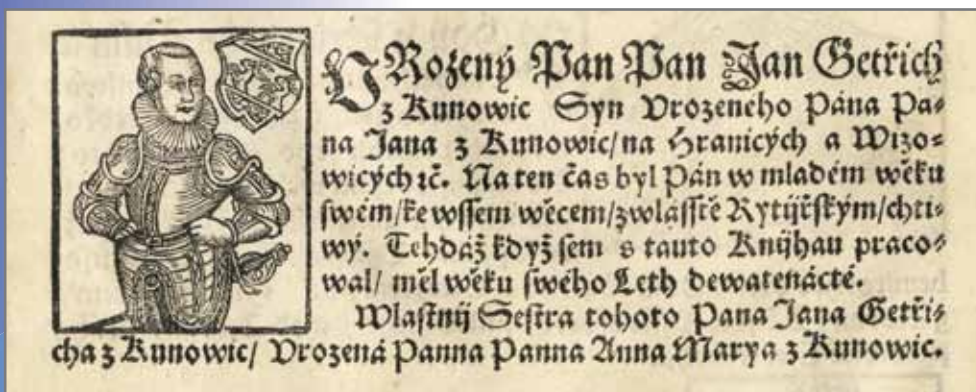 VRozený Pan Pan Jan Getřich
z Kunowic Syn Vrozeneho Pána Pa⸗
na Jana z Kunowic/na Hranicých a Wizo⸗
wicých ꝛč. Na ten čas byl Pán w mladém wěku
swém/ke wssem wěcem/zwlásstě Rytijřským/chti⸗
wý. Tehdáž když sem s tauto Knijhau praco⸗
wal/ měl wěku swého Leth dewatenácté.
Wlastnij Sestra tohoto Pana Jana Getři⸗
cha z Kunowic/ Vrozená Panna Panna Anna Marya z Kunowic.